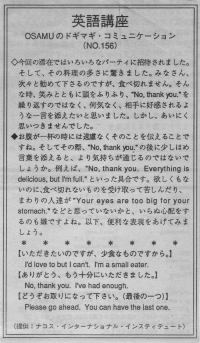 英語講座
OSAMUのドギマギ・コミュニケーション
(NO.156)
◇今回の滞在ではいろいろなパーティに招待されました。
そして、その料理の多さに驚きました。みなさん、
次々と勧めて下さるのですが、食べ切れません。そん
な時、笑みとともに頭をふりふり、"No, thank you."を
繰り返すのではなく、何気なく、相手に好感されるよ
うな一言を添えたいと思いました。しかし、あいにく
思いつきませんでした。
◆お腹が一杯の時には遠慮なくそのことを伝えることで
すね。そしてその際、"No, thank you."の後に少しほめ
言葉を添えると、より気持ちが通じるのではないで
しょうか。例えば、"No, thank you. Everything is
delicious, but I'm full."といった具合です。欲しくもな
いのに、食べ切れないものを受け取って苦しんだり、
まわりの人達が"Your eyes are too big for your
stomach."などと思っていないかと、いらぬ心配をす
るのも嫌ですよね。以下、便利な表現をあげてみま
しょう。
* * * * * * *
【いただきたいのですが、少食なものですから。】
I'd love to but I can't. I'm a small eater.
【ありがとう、もう十分にいただきました。】
No, thank you. I've had enough.
【どうぞお取りになって下さい。(最後の一つ)】
Please go ahead. You can have the last one.
(提供:ナコス・インターナショナル・インスティテュート)